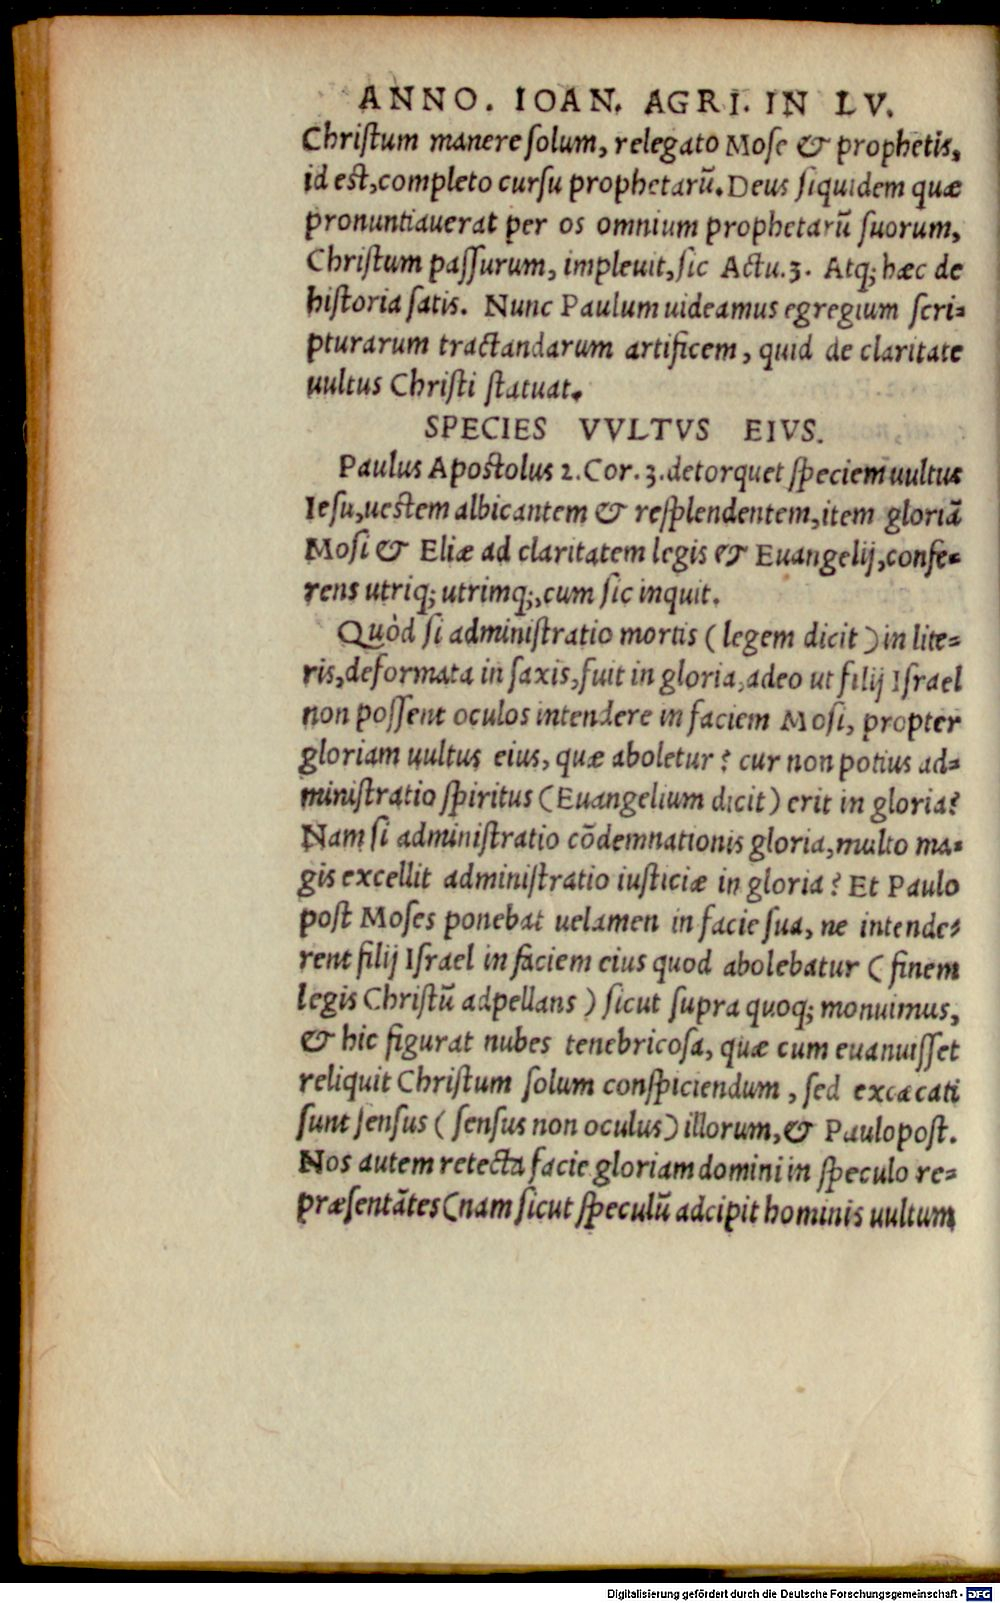 ANNO. IOAN. AGRI. IN LV.
Christum manere solum, relegato Mose & prophetis,
id est, completo cursu prophetarũ. Deus siquidem quæ
pronuntiauerat per os omnium prophetarũ suorum,
Christum passurum, impleuit, sic Actu. 3. Atq; hæc de
historia satis. Nunc Paulum uideamus egregium scri=
pturarum tractandarum artificem, quid de claritate
uultus Christi statuat.
SPECIES VVLTVS EIVS.
Paulus Apostolus 2. Cor. 3. detorquet speciem uultus
Iesu, uestem albicantem & resplendentem, item gloriã
Mosi & Eliæ ad claritatem legis & Euangelij, confe=
rens utriq; utrimq;, cum sic inquit.
Quòd si administratio mortis (legem dicit) in lite=
ris, deformata in saxis, fuit in gloria, adeo ut filij Israel
non possent oculos intendere in faciem Mosi, propter
gloriam uultus eius, quæ aboletur? cur non potius ad=
ministratio spiritus (Euangelium dicit) erit in gloria?
Nam si administratio cõdemnationis gloria, multo ma=
gis excellit administratio iusticiæ in gloria? Et Paulo
post Moses ponebat uelamen in facie sua, ne intende=
rent filij Israel in faciem eius quod abolebatur (finem
legis Christũ adpellans) sicut supra quoq; monuimus,
& hic figurat nubes tenebricosa, quæ cum euanuisset
reliquit Christum solum conspiciendum, sed excæcati
sunt sensus (sensus non oculus) illorum, & Paulo post.
Nos autem retecta facie gloriam domini in speculo re=
præsentãtes (nam sicut speculũ adcipit hominis uultum
Digitalisierung gefördert durch die Deutsche Forschungsgemeinschaft - DFG